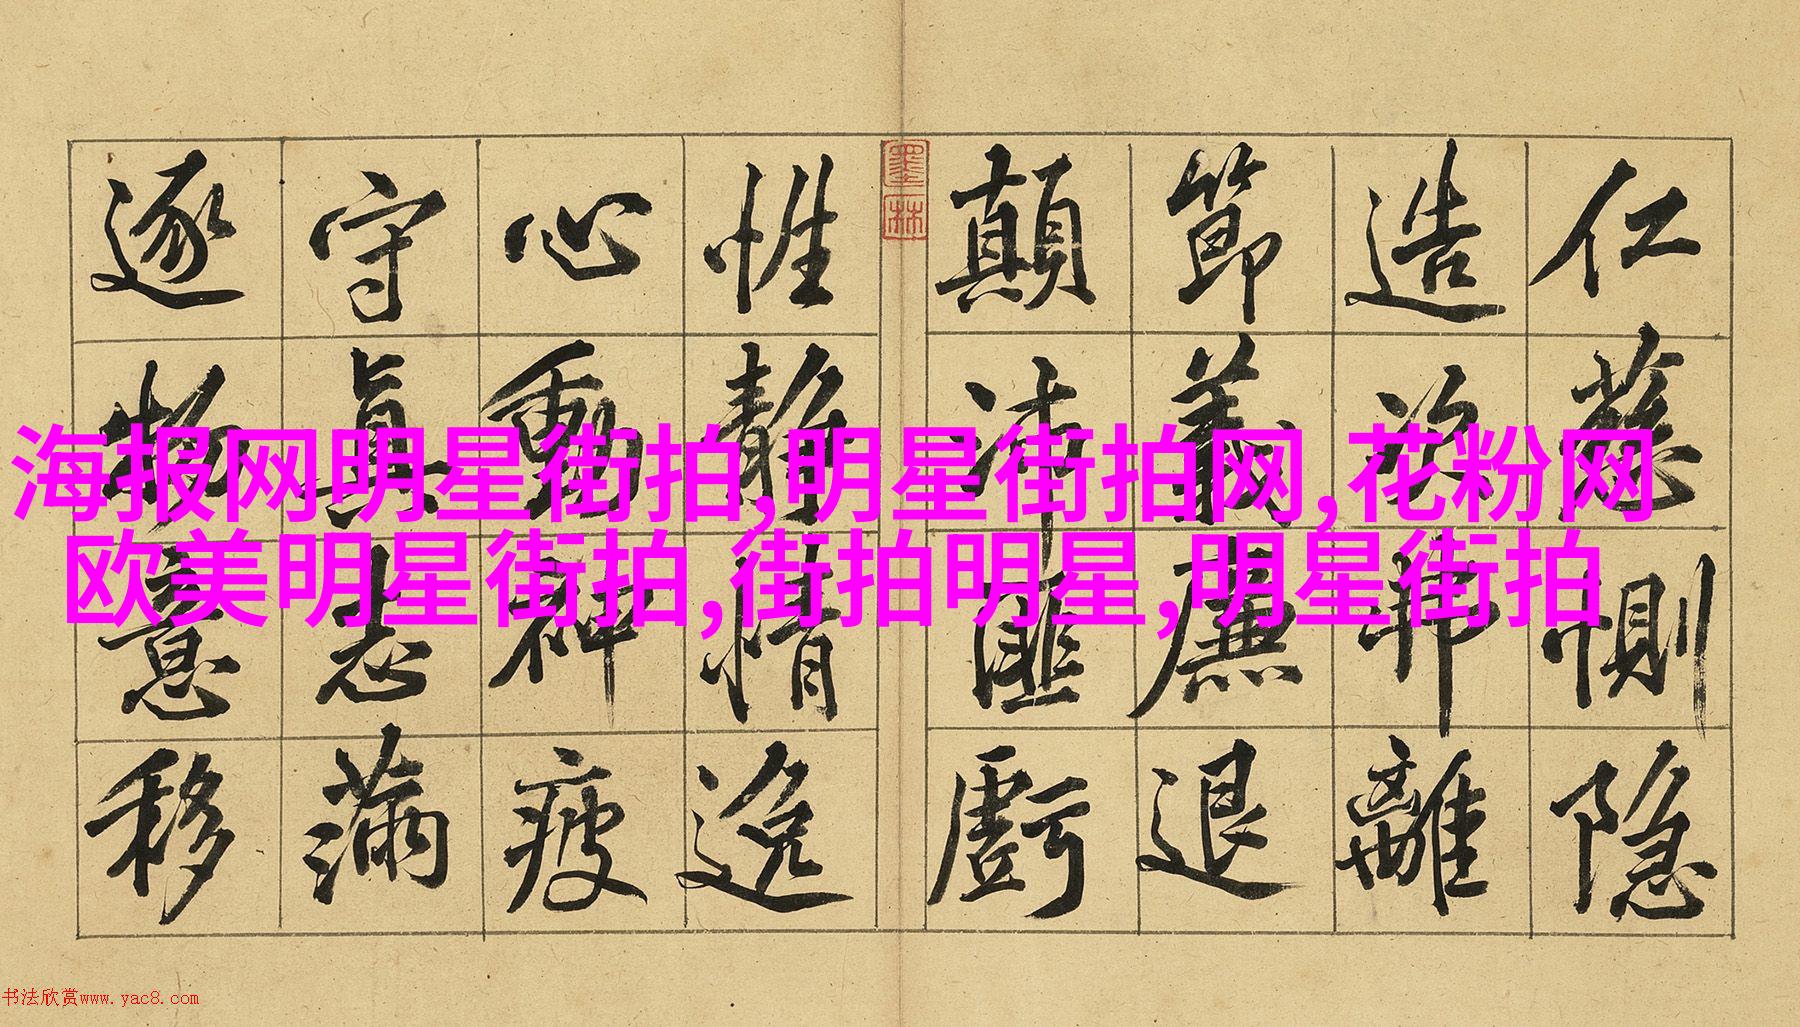 仁慈惻隐
造次弗離
節義廉退
顛沛匪虧
墨林
性静情逸
心動神疲
守真志滿
逐物意移
海报网明星街拍,明星街拍网,花粉网
欧美明星街拍,街拍明星,明星街拍
书法欣赏www.yac8.com